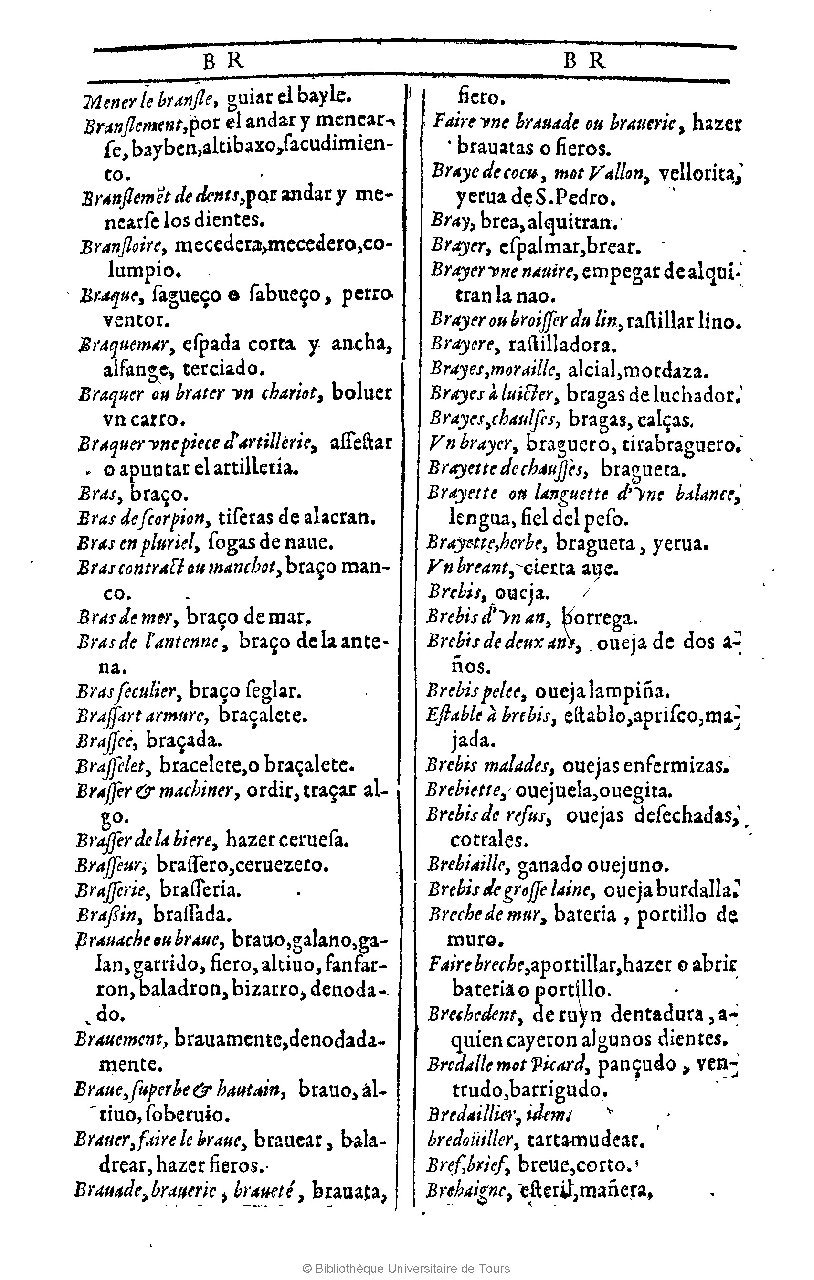 B R
Mener le branſle, guiar el bayle.
Branſlement, por el andar y menear-
ſe, bayben, altibaxo, ſacudimien-
to.
Branſlemẽt de dents, por andar y me-
nearſe los dientes.
Branſloire, mecedera, mecedero, co-
lumpio.
Braque, ſagueço o ſabueço, perro
ventor.
Braquemar, eſpada corta y ancha,
alfange, terciado.
Braquer ou brater vn chariot, boluer
vn carro.
Braquer vne piece d'artillerie, aſſeſtar
o apuntar el artilleria.
Bras, braço.
Bras de ſcorpion, tiſeras de alacran.
Bras en pluriel, ſogas de naue.
Bras contract ou manchot, braço man-
co.
Bras de mer, braço de mar.
Bras de l'antenne, braço de la ante-
na.
Bras ſeculier, braço ſeglar.
Braſſart armure, braçalete.
Braſſee, braçada.
Braſſelet, bracelete, o braçalete.
Braſſer & machiner, ordir, traçar al-
go.
Braſſer de la biere, hazer cerueſa.
Braſſeur, braſſero, ceruezero.
Braſſerie, braſſeria.
Braßin, braſſada.
Brauache ou braue, brauo, galano, ga-
lan, garrido, fiero, altiuo, fanfar-
ron, baladron, bizarro, denoda-
do.
Brauement, brauamente, denodada-
mente.
Braue, ſuperbe & hautain, brauo, al-
tiuo, ſoberuio.
Brauer, faire le braue, brauear, bala-
drear, hazer fieros.
Brauade, brauerie, braueté, brauata,
B R
fiero.
Faire vne brauade ou brauerie, hazer
brauatas o fieros.
Braye de cocu, mot Vallon, vellorita,
yerua de S. Pedro.
Bray, brea, alquitran.
Brayer, eſpalmar, brear.
Brayer vne nauire, empegar de alqui-
tran la nao.
Brayer ou broiſſer du lin, raſtillar lino.
Brayere, raſtilladora.
Brayes, moraille, alcial, mordaza.
Brayes à luicter, bragas de luchador.
Brayes, chauſſes, bragas, calças.
Vn brayer, braguero, tirabraguero.
Brayette de chauſſes, bragueta.
Brayette ou languette d'vne balance,
lengua, fiel del peſo.
Brayette, herbe, bragueta, yerua.
Vn breant, cierta aue.
Brebis, oueja.
Brebis d'vn an, borrega.
Brebis de deux ans, oueja de dos a-
ños.
Brebis pelee, oueja lampiña.
Eſtable à brebis, eſtablo, apriſco, ma-
jada.
Brebis malades, ouejas enfermizas.
Brebiette, ouejuela, ouegita.
Brebis de refus, ouejas deſechadas,
corrales.
Brebiaille, ganado ouejuno.
Brebis de groſſe laine, oueja burdalla.
Breche de mur, bateria, portillo de
muro.
Faire breche, aportillar, hazer o abrir
bateria o portillo.
Brechedent, de ruyn dentadura, a-
quien cayeron algunos dientes.
Bredalle mot Picard, pançudo, ven-
trudo, barrigudo.
Bredaillier, idem.
bredoüiller, tartamudear.
Bref, brief, breue, corto.
Brehaigne, eſteril, mañera,
© Bibliothèque Universitaire de Tours